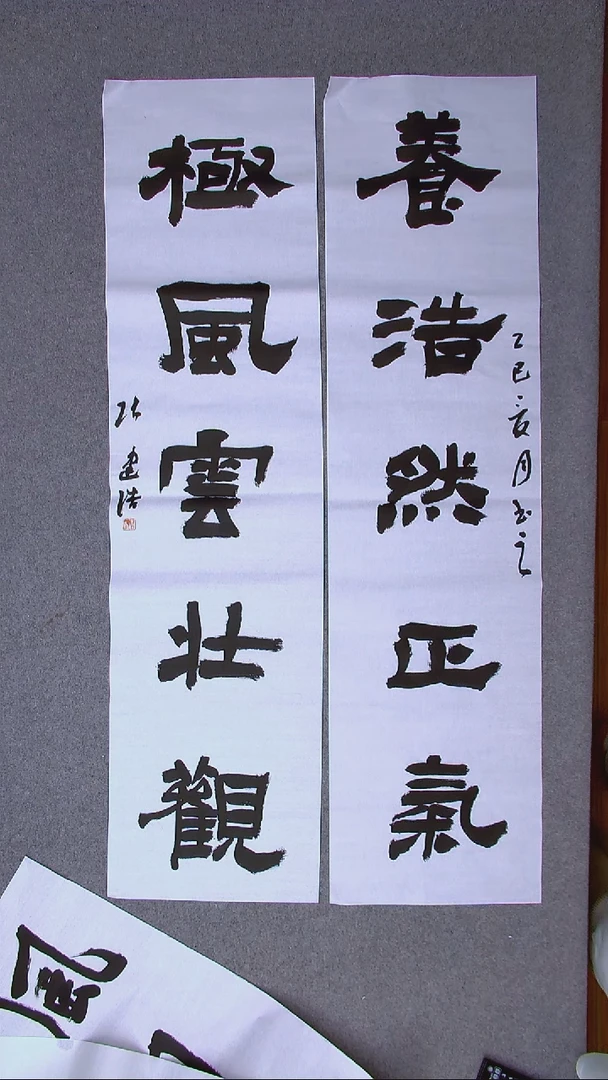 養浩然正氣
乙巳亥月書之
極風雲壯觀
建浩
風